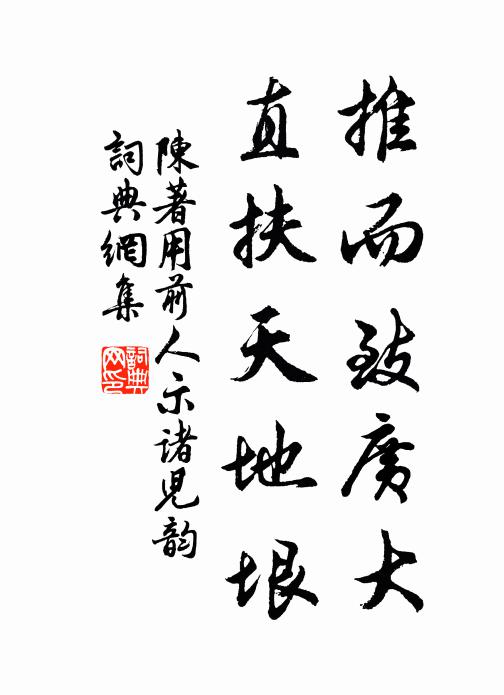 推而致廣大
直扶天地垠
陳著用前人示諸兒韵
詞典網集
詞典
网印